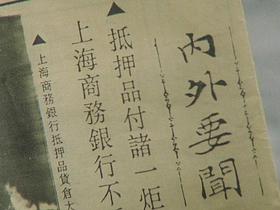 內外要聞
▲抵押品付諸一炬
上海商務銀行不
▲上海商務銀行抵押品貨倉大